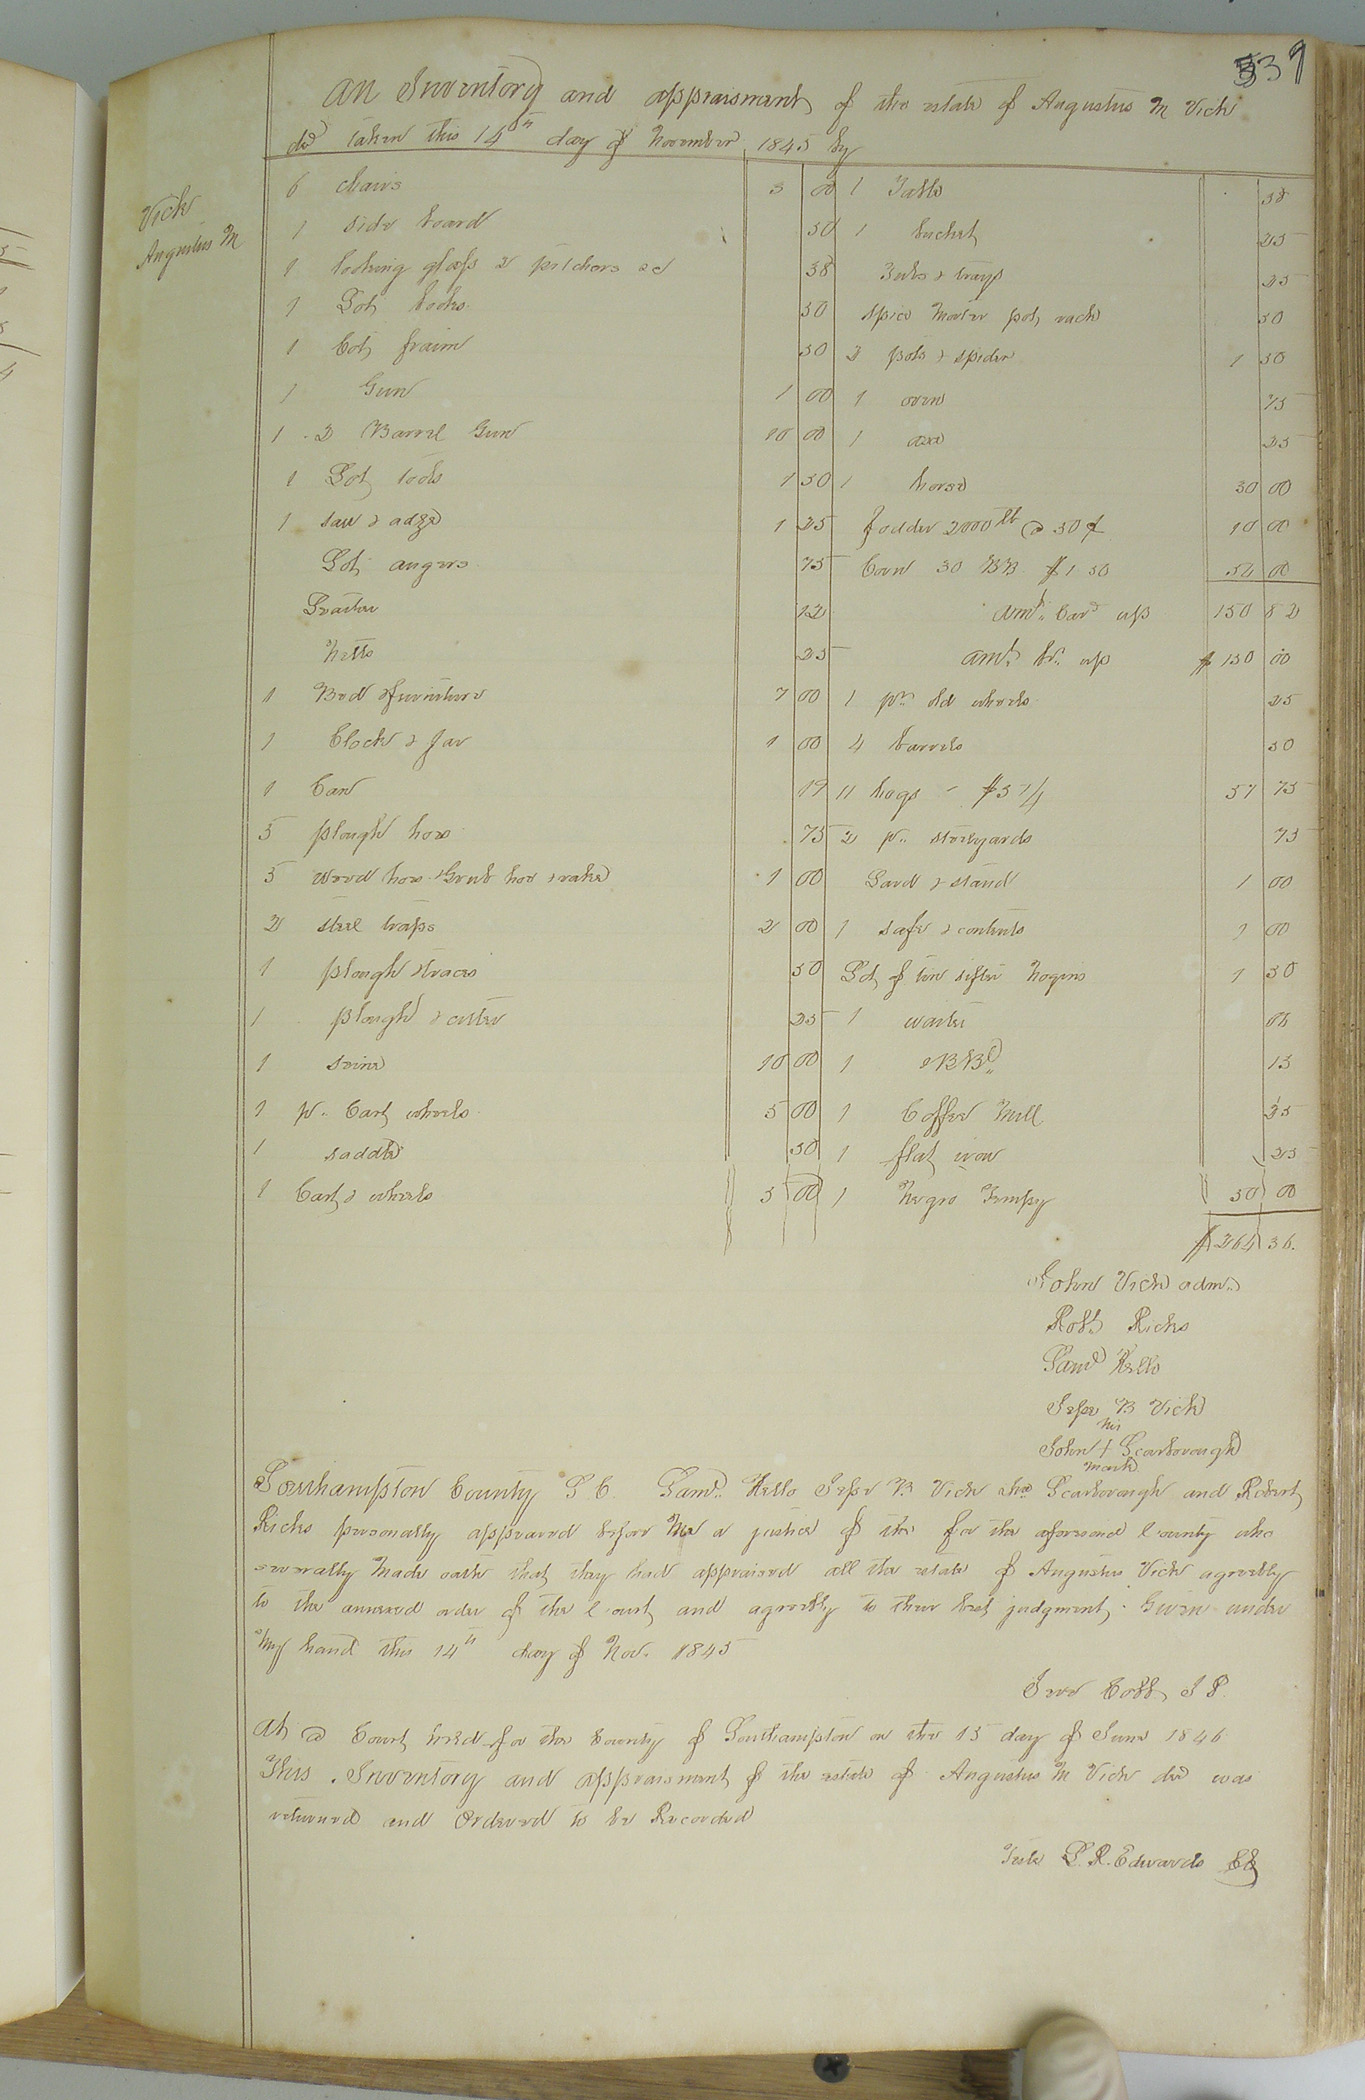 339
An Inventory and appraisment of the estate of Augustus M Vick
decd taken this 14th day of November 1845 by
Vick
Augustus M
6 chairs 3 00
1 side board 50
1 looking glass & pitchers &c 38
1 Lot books 50
1 Cot fraim 50
1 Gun 1 00
1 2 Barrel Gun 10 00
1 Lot tools 1 50
1 saw & adze 1 25
Lot augers 75
12
25
1 Bed & furniture 7 00
1 Clock & Jar 1 00
1 Can 19
5 plough hoes 75
5 weed hoes Grub hoe & rake 1 00
2 steel traps 2 00
1 plough & traces 50
1 plough & cutter 25
1 seine 10 00
1 pr. Cart wheels 5 00
1 saddle 50
1 Cart & wheels 5 00
1 Table 58
1 bucket 25
Tubs & trays 25
spice Morter pot rack 50
2 pots & spider 1 50
1 oven 75
1 axe 25
1 horse 30 00
fodder 2000 lb @ 50 ¢ 10 00
Corn 30 BB $1 50
Amt. Card up 150 82
Amt. br. up $ 150 00
1 pr. old wheels 25
4 barrels 50
11 hogs - $5 1/4 57 75
2 pr. steelyards 75
Lard & stand 1 00
1 safe & contents 1 00
Lot of tin sifter Nogins 1 50
1 waiter 06
1 13
1 Coffee Mill 25
1 flat iron 25
1 Negro Tempy 50 00
$ 264 36.
John Vick admr.
Robt Ricks
Saml Kello
Jesse B Vick
his
John + Scarborough
mark
Southampton County S C. Saml. Kello Jesse B Vick Jno Scarborough and Robert
Ricks personally appeared before Me a justice of the for the aforesaid County who
severally Made oath that they had appraised all the estate of Augustus Vick agreebly
to the annexed order of the Court and agreebly to their best judgment. Given under
My hand this 14th day of Nov. 1845
Cobb J P.
At a Court held for the County of Southampton on the 15 day of June 1846
This Inventory and appraisment of the estate of Augustus M Vick decd was
returned and Ordered to be Recorded
Teste L. R. Edwards CC